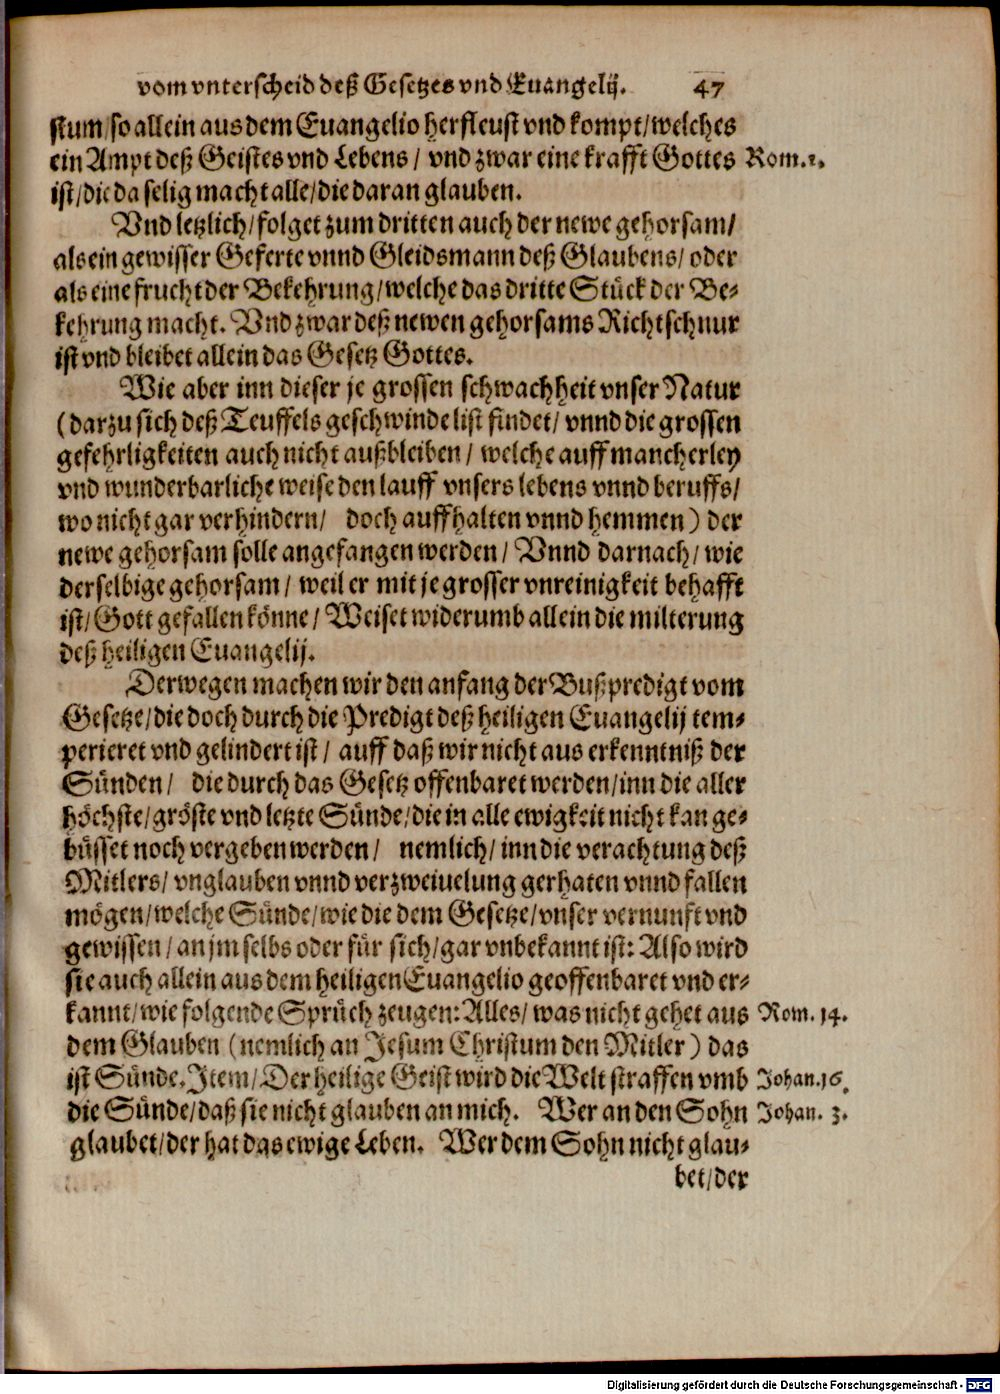 vom vnterscheid deß Gesetzes vnd Euangelij. 47
stum/so allein aus dem Euangelio herfleust vnd kompt/welches
ein Ampt deß Geistes vnd Lebens/ vnd zwar eine krafft Gottes Rom. 1.
ist/die da selig macht alle/die daran glauben.
Vnd letzlich/folget zum dritten auch der newe gehorsam/
als ein gewisser Geferte vnnd Gleidsmann deß Glaubens/ oder
als eine frucht der Bekehrung/welche das dritte Stück der Be-
kehrung macht. Vnd zwar deß newen gehorsams Richtschnur
ist vnd bleibet allein das Gesetz Gottes.
Wie aber inn dieser je grossen schwachheit vnser Natur
(darzu sich deß Teuffels geschwinde list findet/ vnnd die grossen
gefehrligkeiten auch nicht außbleiben/ welche auff mancherley
vnd wunderbarliche weise den lauff vnsers lebens vnnd beruffs/
wo nicht gar verhindern/ doch auffhalten vnnd hemmen) der
newe gehorsam solle angefangen werden/ Vnnd darnach/ wie
derselbige gehorsam/ weil er mit je grosser vnreinigkeit behafft
ist/Gott gefallen könne/ Weiset widerumb allein die milterung
deß heiligen Euangelij.
Derwegen machen wir den anfang der Bußpredigt vom
Gesetze/die doch durch die Predigt deß heiligen Euangelij tem-
perieret vnd gelindert ist/ auff daß wir nicht aus erkenntniß der
Sünden/ die durch das Gesetz offenbaret werden/inn die aller
höchste/gröste vnd letzte Sünde/die in alle ewigkeit nicht kan ge-
büsset noch vergeben werden/ nemlich/ inn die verachtung deß
Mitlers/ vnglauben vnnd verzweiuelung gerhaten vnnd fallen
mögen/welche Sünde/wie die dem Gesetze/vnser vernunft vnd
gewissen/an jm selbs oder für sich/gar vnbekannt ist: Also wird
sie auch allein aus dem heiligen Euangelio geoffenbaret vnd er-
kannt/wie folgende Sprüch zeugen: Alles/ was nicht gehet aus Rom. 14.
dem Glauben (nemlich an Jesum Christum den Mitler) das
ist Sünde. Item/Der heilige Geist wird die Welt straffen vmb Johan. 16.
die Sünde/daß sie nicht glauben an mich. Wer an den Sohn Johan. 3.
glaubet/der hat das ewige Leben. Wer dem Sohn nicht glau-
bet/der
Digitalisierung gefördert durch die Deutsche Forschungsgemeinschaft - DFG